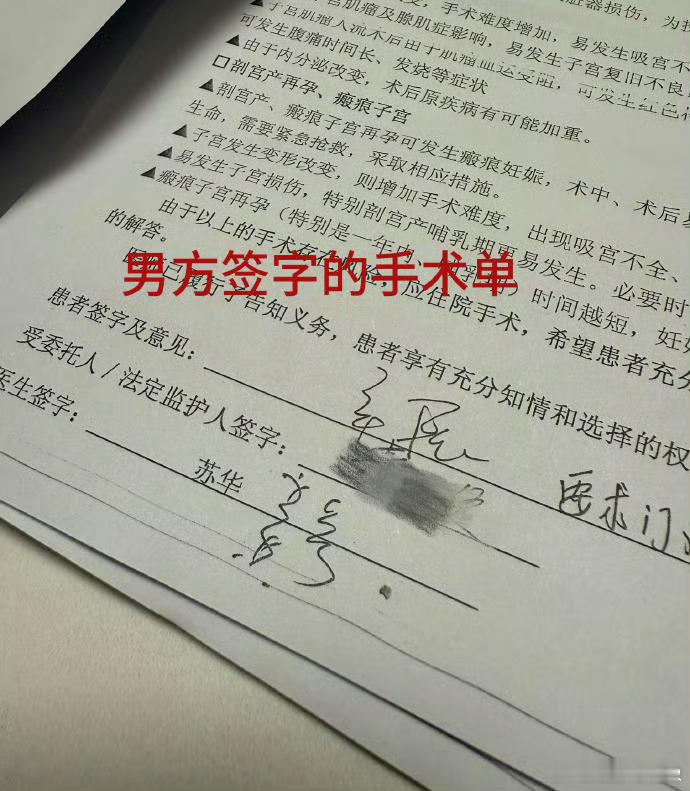 手术难度增加,易发生脏器损伤,为
子宫肌瘤及腺肌症影响,易发生吸宫不
▲子宫肌瘤人流术后由于肌瘤血运受阻,易发生子宫复旧不良
可发生腹痛时间长、发烧等症状
▲由于内分泌改变,术后原疾病有可能加重。
□剖宫产再孕、瘢痕子宫
▲剖宫产、瘢痕子宫再孕可发生瘢痕妊娠,术中、术后
生命,需要紧急抢救,采取相应措施。
▲子宫发生变形改变,则增加手术难度,出现吸宫不全、
▲易发生子宫损伤,特别剖宫产哺乳期更易发生。必要时
▲瘢痕子宫再孕(特别是一年内、哺乳期)时间越短,妊
由于以上的手术存在风险,应住院手术,希望患者充分
的解答。
医院已履行了告知义务,患者享有充分知情和选择的权
男方签字的手术单
患者签字及意见:
要求门
受委托人/法定监护人签字:
医生签字:
苏华